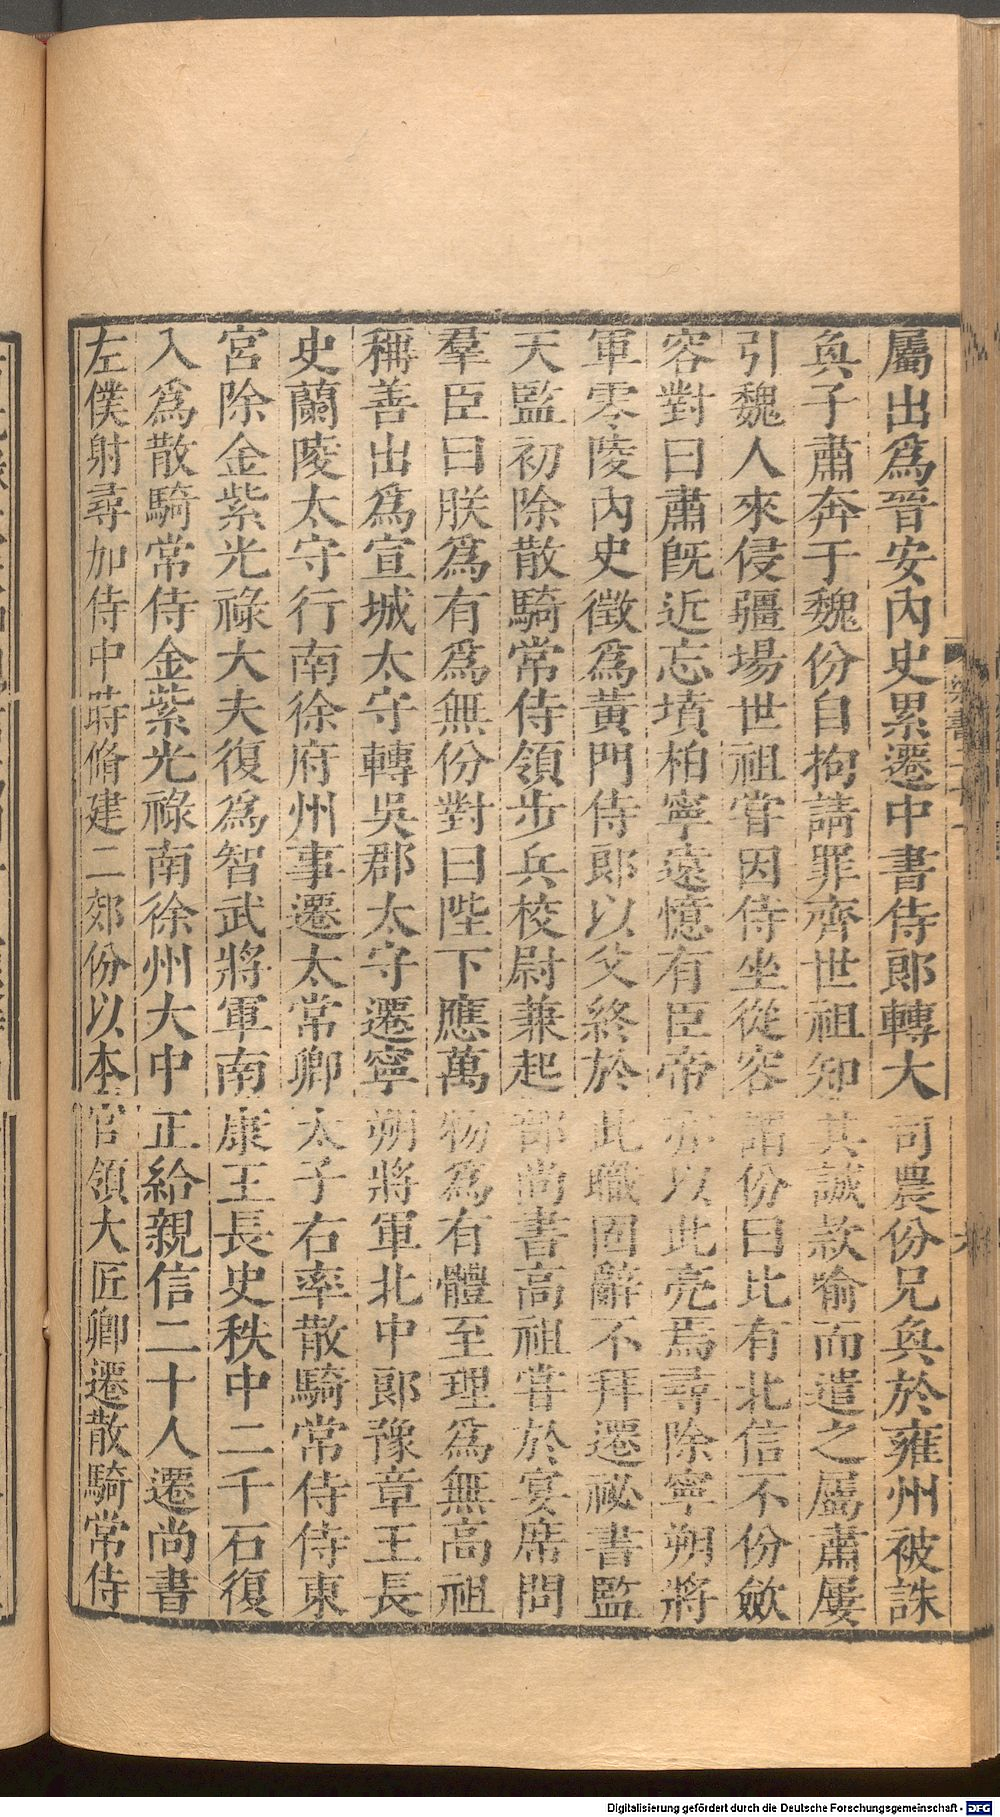 屬出爲晉安內史累遷中書侍郎轉大司農份兄奐於雍州被誅
奐子肅奔于魏份自拘請罪齊世祖知其誠款喻而遣之屬肅屢
引魏人來侵疆場世祖嘗因侍坐從容謂份曰比有北信不份歛
容對曰肅旣近忘墳柏寧遠憶有臣帝亦以此亮焉尋除寧朔將
軍零陵內史徵爲黃門侍郎以父終於此職固辭不拜遷祕書監
天監初除散騎常侍領步兵校尉兼起部尚書高祖嘗於宴席問
羣臣曰朕爲有爲無份對曰陛下應萬物爲有體至理爲無高祖
稱善出爲宣城太守轉吳郡太守遷寧朔將軍北中郎豫章王長
史蘭陵太守行南徐府州事遷太常卿太子右率散騎常侍侍東
宮除金紫光祿大夫復爲智武將軍南康王長史秩中二千石復
入爲散騎常侍金紫光祿南徐州大中正給親信二十人遷尚書
左僕射尋加侍中時脩建二郊份以本官領大匠卿遷散騎常侍
Digitalisierung gefördert durch die Deutsche Forschungsgemeinschaft - DFG